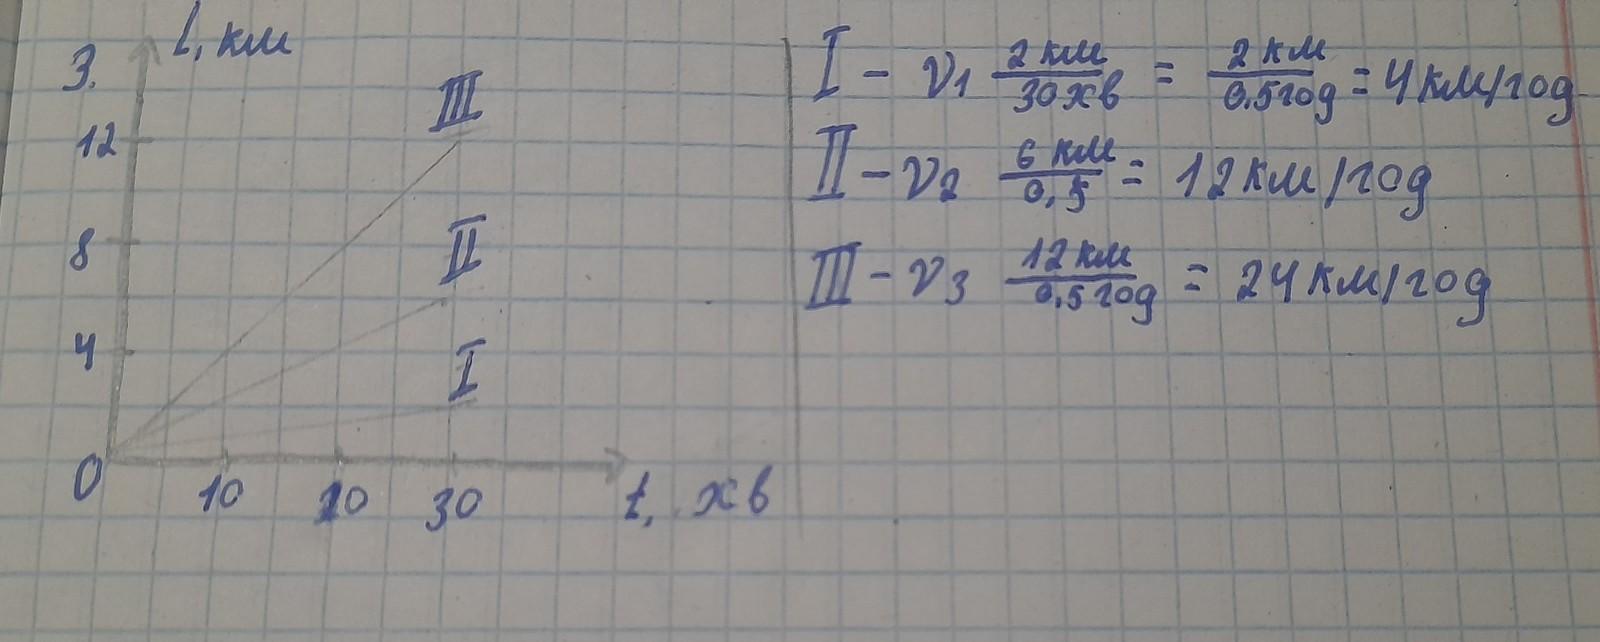 3.
l, км
III
12
II
8
I
4
0
10 20 30 t, хв
I - v1 2 км / 30 хв = 2 км / 0.5 год = 4 км/год
II - v2 6 км / 0,5 = 12 км/год
III - v3 12 км / 0,5 год = 24 км/год